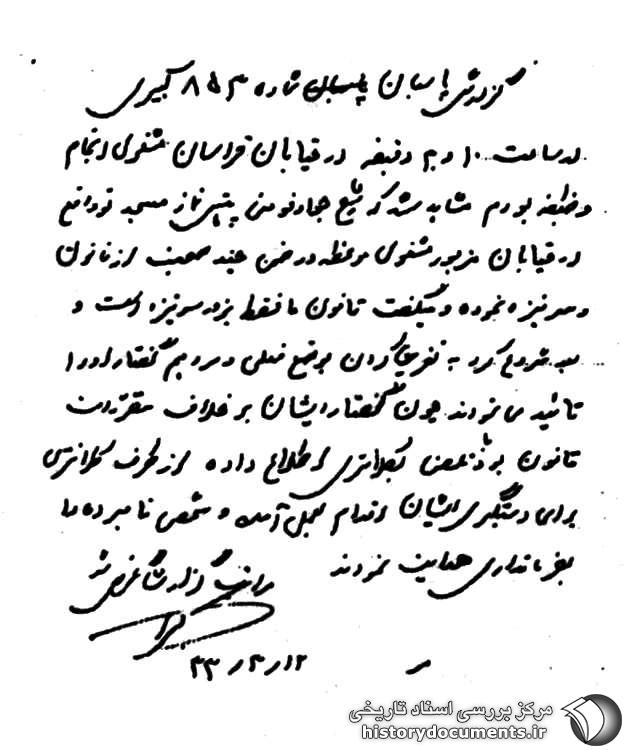 گزارش پاسبان شماره ۸۵۳ کبیری
در ساعت ۱۰ و ۳۰ دقیقه در خیابان خراسان مشغول انجام
وظیفه بودم مشاهده شد که شیخ جادنوس پیش نماز مسجد نو واقع
در خیابان مزبور مشغول موعظه و در ضمن چند صحبت از قانون
و سرنیزه نموده و میگفت قانون ما فقط بزور سرنیزه است و
بعد شروع کرد به کردن وضع فعلی و مردم گفتار او را
تائید می نمودند چون گفتار ایشان بر خلاف مقررات
قانون بود تلفنی بکلانتری اطلاع داده از طرف کلانتری
برای دستگیری ایشان اقدام بعمل آمده و شخص نامبرده را
بفرمانداری هدایت نمودند مراتب گزارشاً عرض شد
۴۳/۳/۱۲
مرکز بررسی اسناد تاریخی
historydocuments.ir